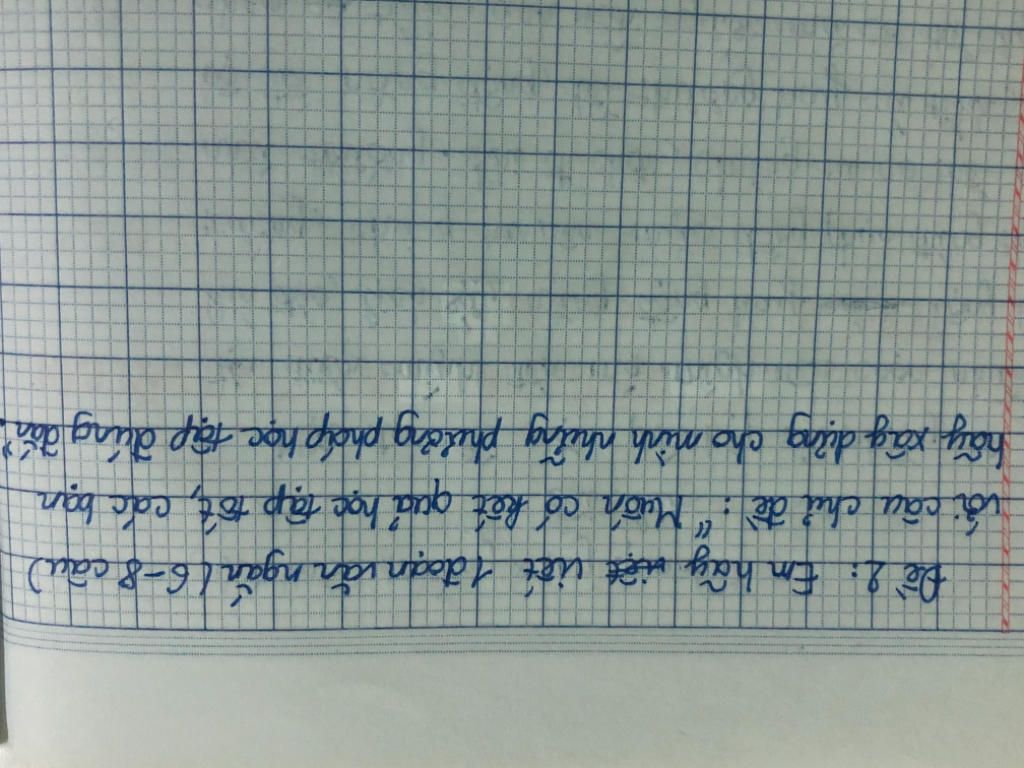 Đề 2: Em hãy viết viết 1 đoạn văn ngắn (6-8 câu)
với câu chủ đề: "Muốn có kết quả học tập tốt, các bạn
hãy xây dựng cho mình những phương pháp học tập đúng đắn".